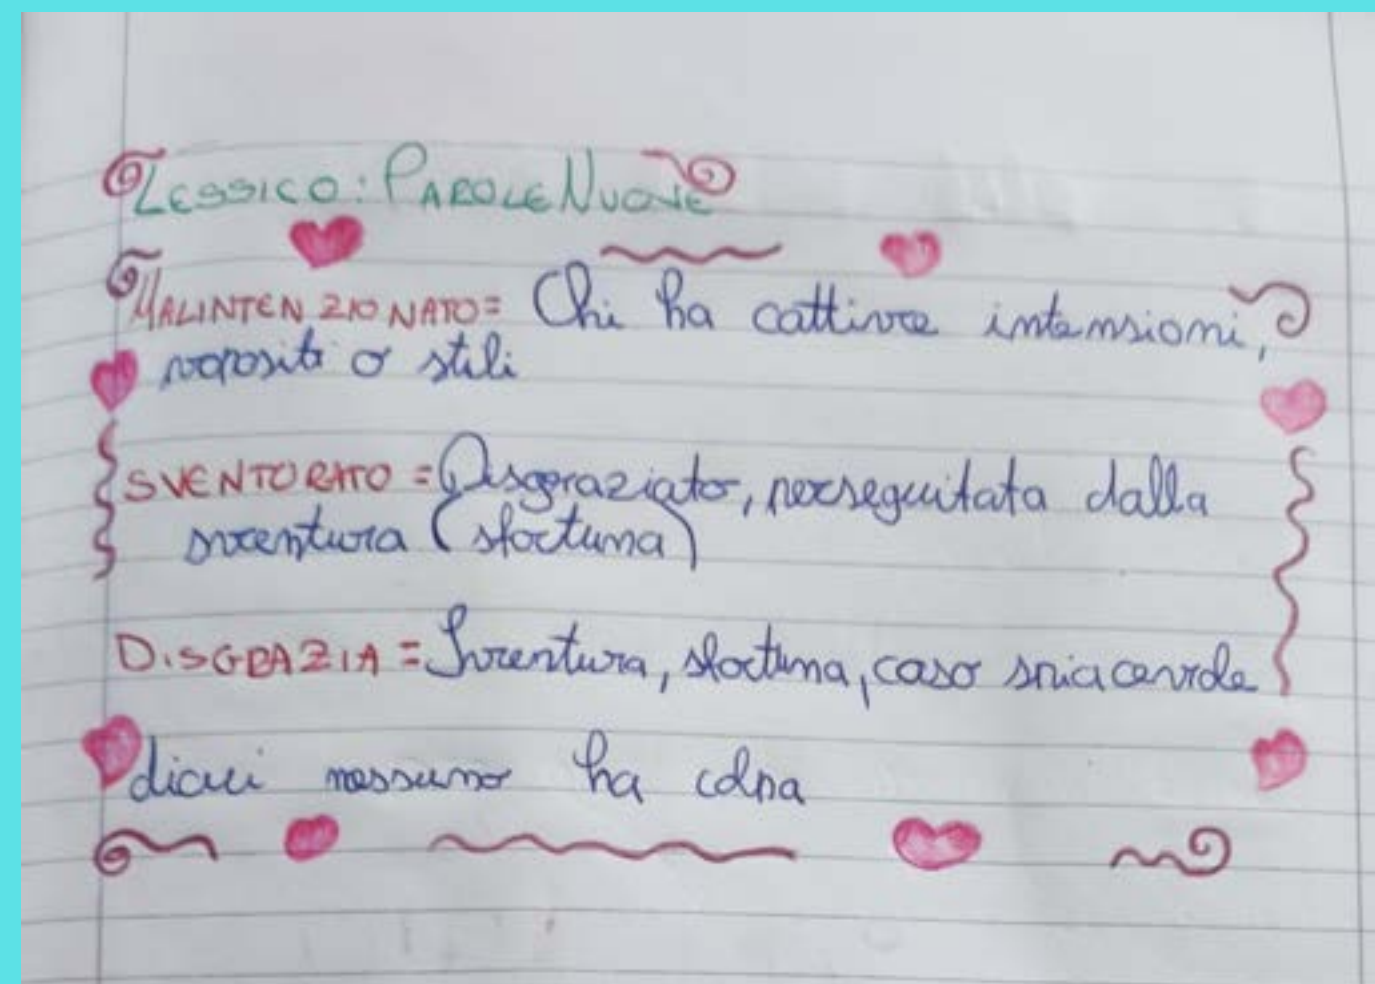 LESSICO: PAROLE NUOVE
MALINTENZIONATO= Chi ha cattive intensioni,
propositi o stili
SVENTORATO = Disgraziato, perseguitata dalla
sventura (sfortuna)
DISGRAZIA = Sventura, sfortuna, caso spiacevole
dicui nessuno ha colpa